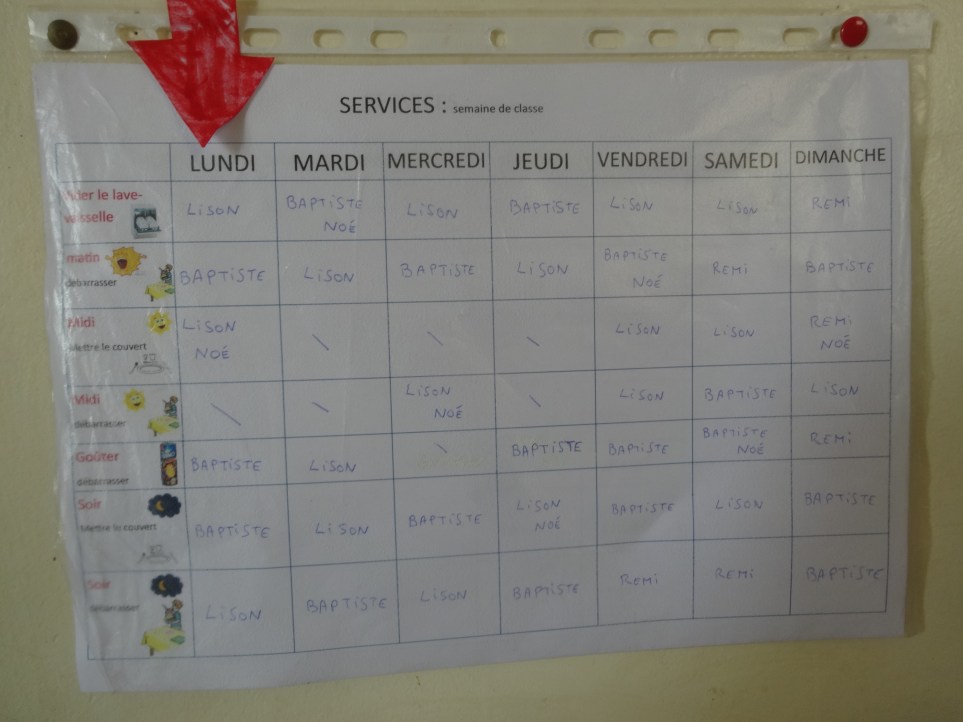 SERVICES : semaine de classe
LUNDI MARDI MERCREDI JEUDI VENDREDI SAMEDI DIMANCHE
Vider le lave-
vaisselle
LiSON BAPTiSTE NOÉ LiSON BAPTiSTE LiSON LiSON REMi
matin
débarrasser
BAPTiSTE LiSON BAPTiSTE LiSON BAPTiSTE NOÉ REMi BAPTiSTE
Midi
Mettre le couvert
LiSON NOÉ \ \ \ LiSON LiSON REMi NOÉ
Midi
débarrasser
\ \ LiSON NOÉ \ LiSON BAPTiSTE LiSON
Goûter
débarrasser
BAPTiSTE LiSON \ BAPTiSTE BAPTiSTE BAPTiSTE NOÉ REMi
Soir
Mettre le couvert
BAPTiSTE LiSON BAPTiSTE LiSON NOÉ BAPTiSTE LiSON BAPTiSTE
Soir
débarrasser
LiSON BAPTiSTE LiSON BAPTiSTE REMi REMi BAPTiSTE